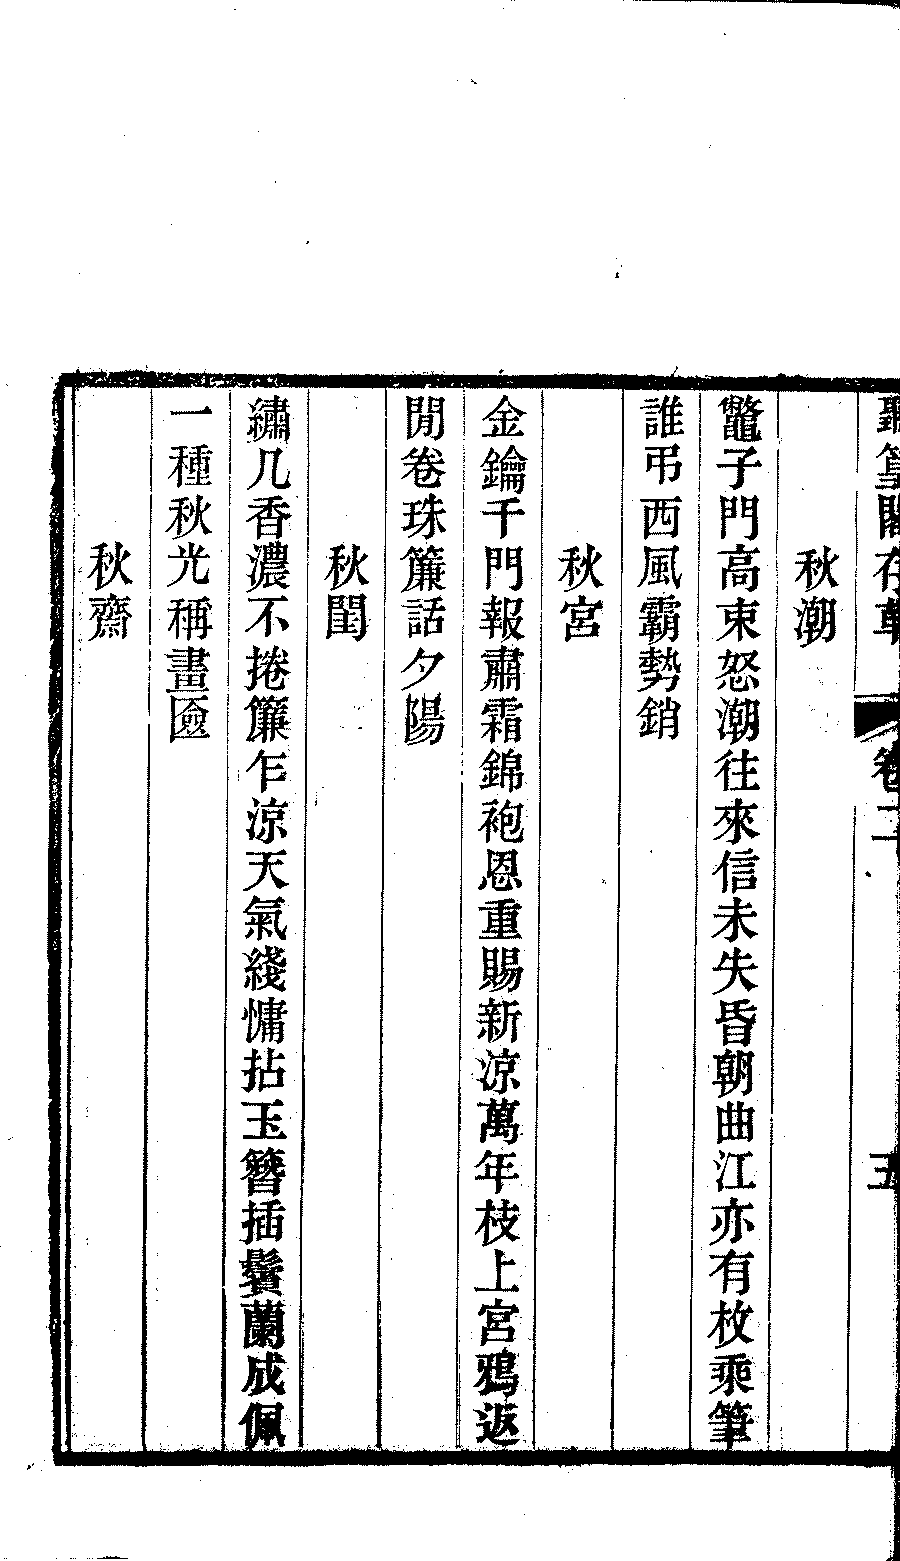 聽篁閣存草 卷二 五
秋潮
鼈子門高束怒潮往來信未失昏朝曲江亦有枚乘筆
誰弔西風霸勢銷
秋宮
金鑰千門報肅霜錦袍恩重賜新涼萬年枝上宮鴉返
閒卷珠簾話夕陽
秋閨
繡几香濃不捲簾乍涼天氣綫慵拈玉簪插鬢蘭成佩
一種秋光稱畫匳
秋齋